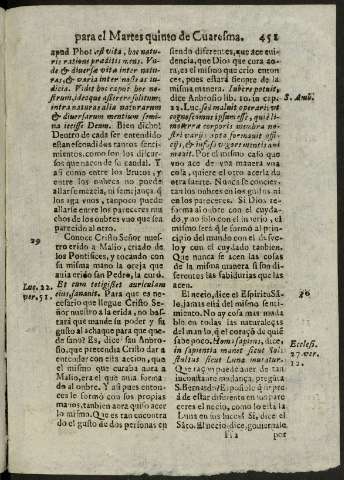 para el Martes quinto de Cuaresma. 451
apud Phot est vita, hoc natu-
ris rationo præditis mens. Va-
de & diuersa vita inter natu-
ras, & varia inter nostras iu-
dicia. Vidit hoc capit hoc no-
strum, idcirco afferere solitum;
intra naturalia naturarum
& diuersarum mentium semi-
na iecisse Deum. Bien dicho!
Dentro de cada ser entendido
estan escondidos tantos senti-
mientos, como son los discur-
sos que nacen de su caudal. Y
asi como entre los brutos, y
entre los onbres no puede
allarse mezcla, ni semejança q̃
los aga vnos, tampoco puede
allarse entre los pareceres mu-
chos de los onbres vno que sea
parecido al otro.
29 Conoce Cristo Señor nues-
tro erido a Malio, criado de
los Pontifices, y tocando con
su misma mano la oreja que
auia erido san Pedro, la curó.
Luc. 22. Et cum totigisset auriculam
ver. 51. eius, sanauit. Para que es ne-
cesario que llegue Cristo Se-
ñor nuestro a la erida, no bas-
tará que mande su poder y su
gusto al achaque para que que-
de sano? Es, dice san Anbro-
sio, que pretendia Cristo dar a
entender con esta acion, que
el mismo que curaba aora a
Malio, era el que auia forma-
do al onbre. Y asi para enton-
ces le formò con sus propias
manos, tanbien aora quiso acer
lo mismo. Que es tan encontra
do el gusto de dos personas en
siendo diferentes, que ace eui-
dencia, que Dios que cura ao-
ra, es el mismo que crio enton-
ces, pues estará siendo de la
misma manera. Iubere potuit,
dice Anbrosio lib. 10. in cap. S. Amb.
22. Luc. sed maluit operari; vt
cognoscamus ipsum esse, qui è li-
mo terræ corporis membra no-
stri varijs apta formauit offi-
cijs, & infuso vigore mentis ani
mauit. Por el mismo caso que
vno ace de vna manera vna
cosa, quiere el otro acerla de
otra suerte. Nunca se concier-
tan los onbres en los gustos ni
en los pareceres. Si Dios re-
forma al onbre con el cuyda-
do, y no solo con el inperio, el
mismo será q̃ le formò al prin-
cipio del mundo con el desve-
lo y con el cuydado tanbien.
Que nunca se acen las cosas
de la misma manera si son di-
ferentes las sabidurias que las
acen.
30 El necio, dice el Espiritu Sā-
to, jamas está del mismo senti-
miento. No ay cosa mas muda
ble en todas las naturalezas
del mundo, q̃ el coraçō de quiē
sabe poco. Homo sapiens, dice,
in sapientia manet sicut Sol: Ecclesi.
stultus sicut Luna mutatur. 27. ver.
12.
Que raçon puede auer de tan
inconstante mudança, pregūta
S. Bernardo? Es posible que pue
da estar diferente en sus pare
ceres el necio, como lo está la
Luna en sus luces? Si, dice el
Sāto. El necio, dice, gouiernale
Ff 2 por